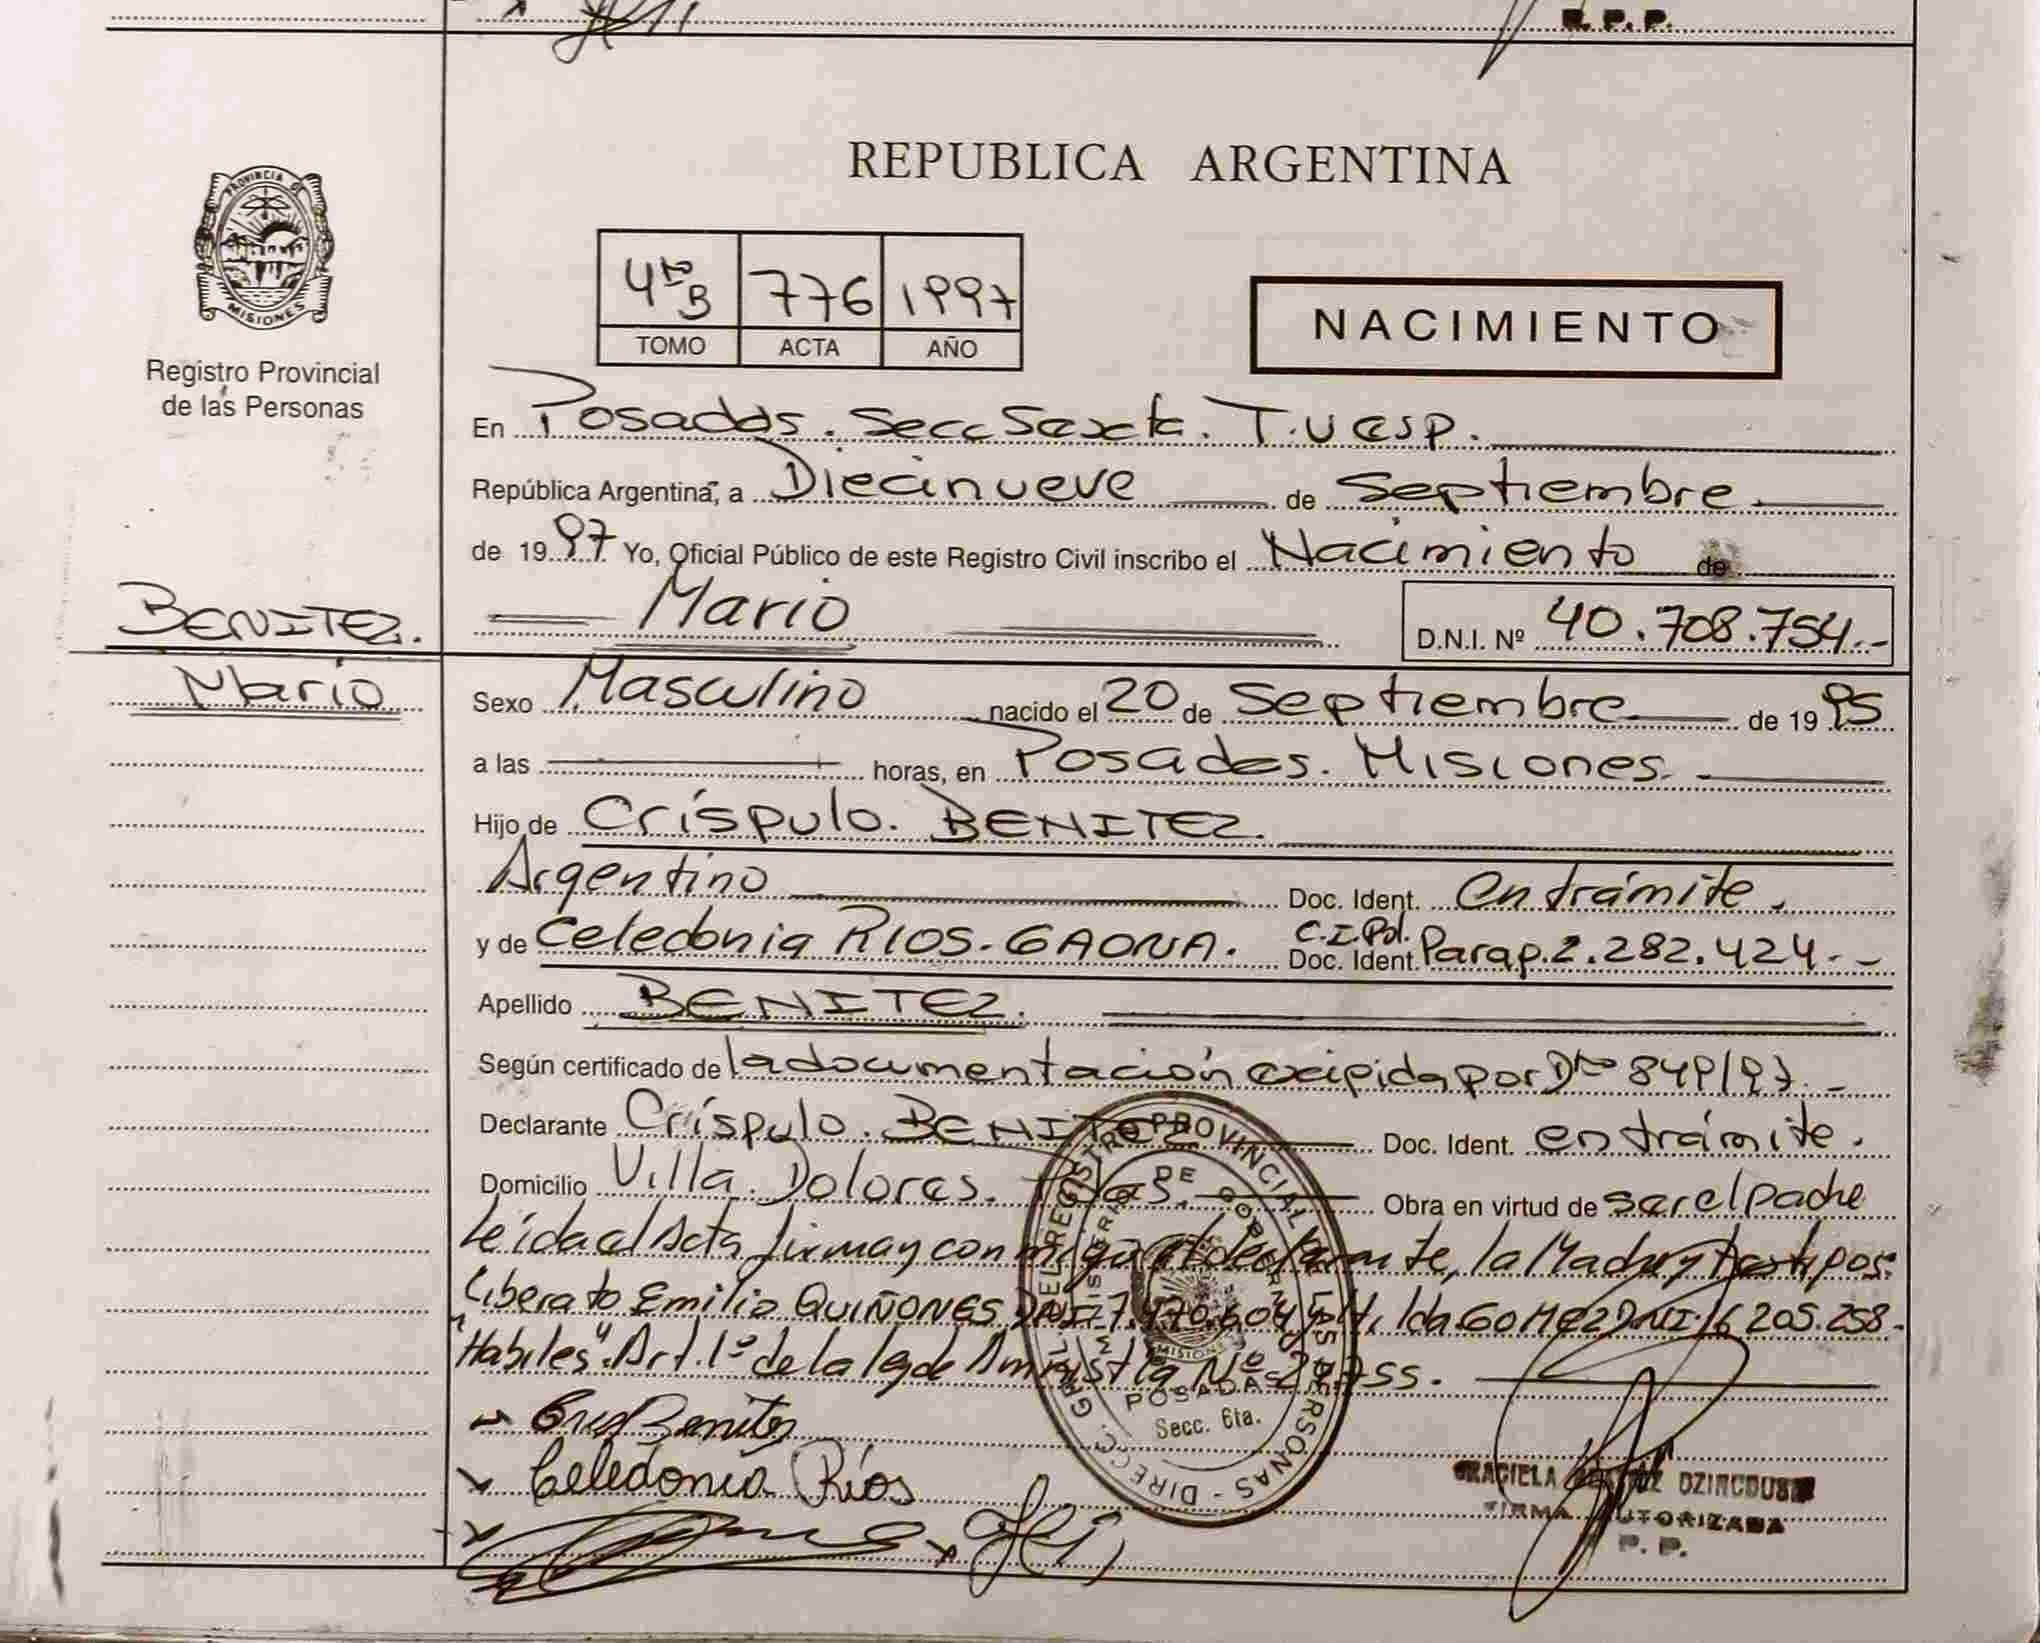 R. P. P.
REPUBLICA ARGENTINA
PROVINCIA DE
MISIONES
Registro Provincial
de las Personas
4to B 776 1997
TOMO ACTA AÑO
NACIMIENTO
En Posadas. Secc Sexta. T.U esp.
República Argentina, a Diecinueve de Septiembre
de 1997 Yo, Oficial Público de este Registro Civil inscribo el Nacimiento de
BENITEZ.
Mario
D.N.I. Nº 40.708.754.-
Mario
Sexo Masculino nacido el 20 de Septiembre de 1995
a las horas, en Posadas. Misiones.
Hijo de Críspulo. BENITEZ.
Argentino Doc. Ident. en trámite.
y de Celedonia RIOS-GAONA. C.I.Pol. Doc. Ident. Parag.2.282.424.-
Apellido BENITEZ.
Según certificado de la documentación exigida por Dto 849/97.-
Declarante Críspulo. BENITEZ Doc. Ident. en trámite.
Domicilio Villa. Dolores. Pdas. Obra en virtud de ser el padre
Leída el Acta firman conmigo el declarante, la Madre y testigos
Liberato Emilio QUIÑONES DNI 7.470.604 y M. Ida GOMEZ DNI.16.205.258-
"Habiles". Art. 1º de la ley de Amnistía Nº
Cris Benitez
Celedonia Ríos
DIRECC. GRAL. DEL REGISTRO PROVINCIAL DE LAS PERSONAS
MINISTERIO DE GOBIERNO
MISIONES
POSADAS
Secc. 6ta.
GRACIELA
FIRMA AUTORIZADA
P. P.